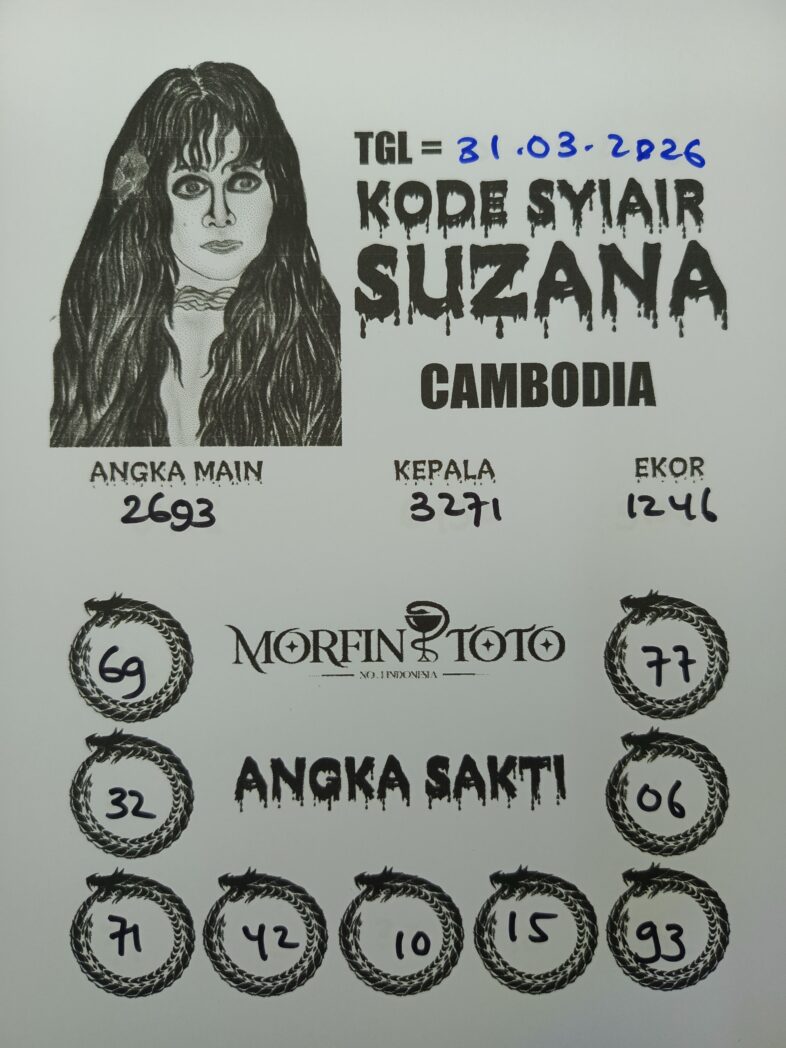 TGL = 31.03.2026
KODE SYIAIR
SUZANA
CAMBODIA
ANGKA MAIN KEPALA EKOR
2693 3271 1246
69 MORFIN TOTO 77
NO.1 INDONESIA
32 ANGKA SAKTI 06
71 42 10 15 93